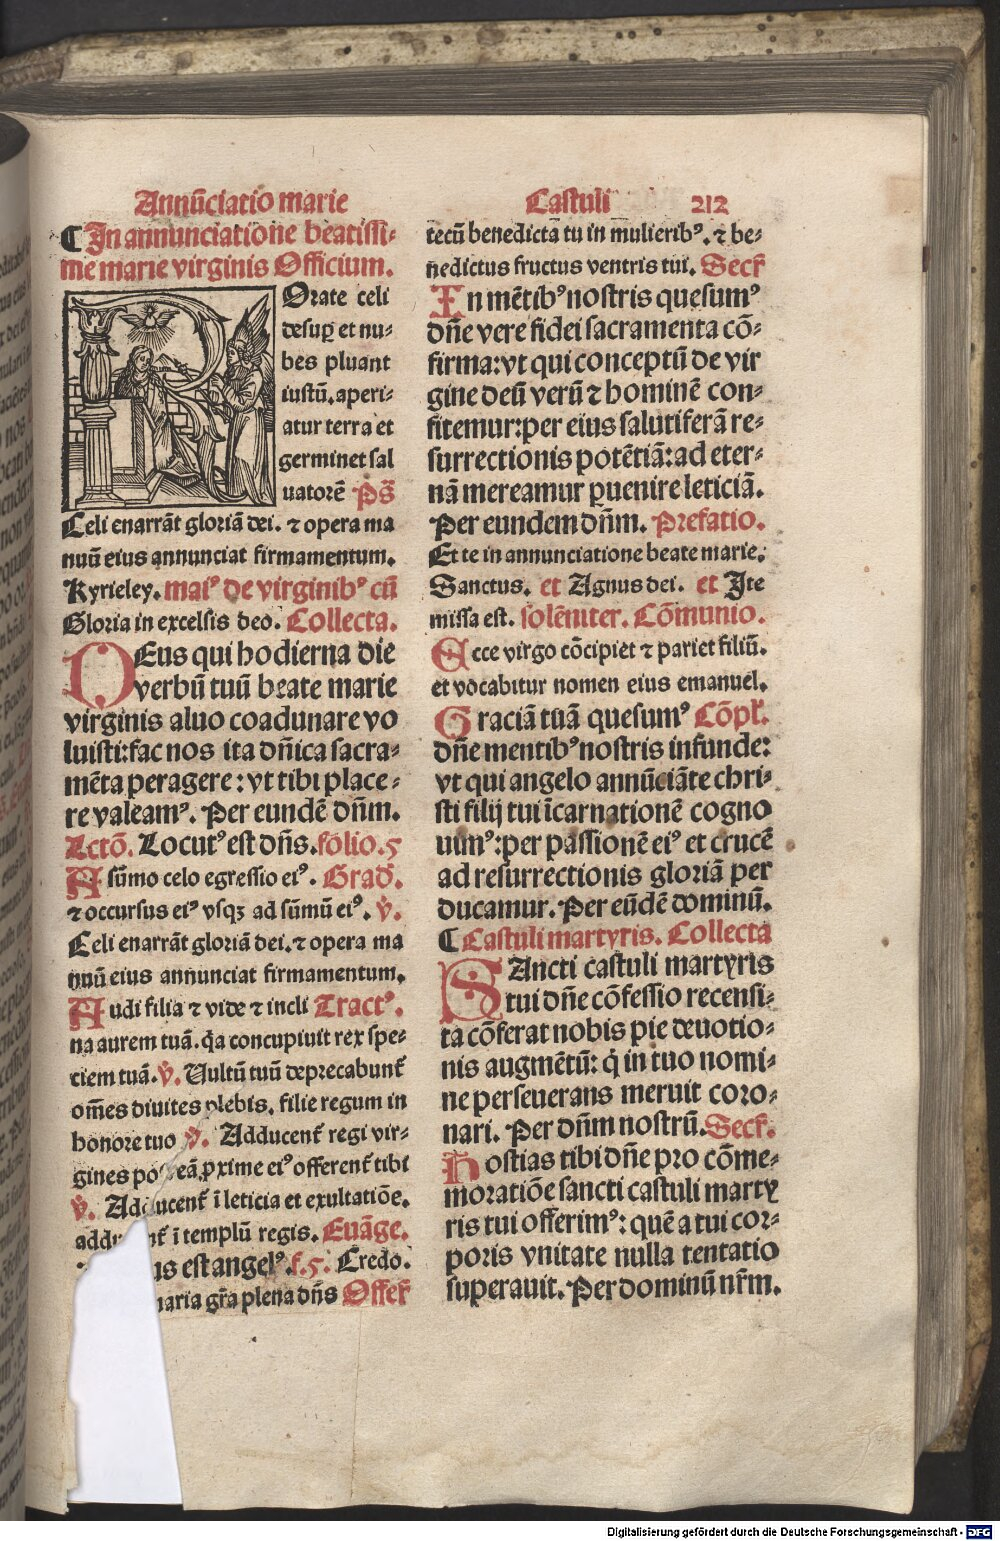 Annūciatio marie
Castuli 212
¶ In annunciatione beatissi-
me marie virginis Officium.
ROrate celi
desuꝑ et nu-
bes pluant
iustū. aperi-
atur terra et
germinet sal
uatorē Ps̄
Celi enarrāt gloriā dei. ⁊ opera ma
nuū eius annunciat firmamentum.
Kyrieley. maiꝰ de virginibꝰ cū
Gloria in excelsis deo. Collecta.
DEus qui hodierna die
verbū tuū beate marie
virginis aluo coadunare vo
luisti: fac nos ita dn̄ica sacra-
mēta peragere: vt tibi place-
re valeamꝰ. Per eundē dn̄m.
Lctō. Locutꝰ est dn̄s. folio. 5
A sūmo celo egressio eiꝰ. Grad̄.
⁊ occursus eiꝰ vsqꝫ ad sūmū eiꝰ. v̄.
Celi enarrāt gloriā dei. ⁊ opera ma
nuū eius annunciat firmamentum.
Audi filia ⁊ vide ⁊ incli Tractꝰ.
na aurem tuā. q̄a concupiuit rex spe-
ciem tuā. v̄. Uultū tuū deprecabunt᷑
om̄es diuites plebis. filie regum in
honore tuo v̄. Adducent᷑ regi vir-
gines po eā ꝓxime eiꝰ offerent᷑ tibi
v̄. Adducent᷑ ī leticia et exultatiōe.
addu nt᷑ ī templū regis. Euāge.
us est angelꝰ. f. 5. Credo.
maria gr̄a plena dn̄s Offer᷑
tecū benedicta tu in mulieribꝰ. ⁊ be-
nedictus fructus ventris tui. Secr᷑
In mētibꝰ nostris quesumꝰ
dn̄e vere fidei sacramenta cō-
firma: vt qui conceptū de vir
gine deū verū ⁊ hominē con-
fitemur: per eius salutiferā re-
surrectionis potētiā: ad eter-
nā mereamur ꝑuenire leticiā.
Per eundem dn̄m. Prefatio.
Et te in annunciatione beate marie.
Sanctus. et Agnus dei. et Ite
missa est. solēniter. Cōmunio.
Ecce virgo cōcipiet ⁊ pariet filiū.
et vocabitur nomen eius emanuel.
Graciā tuā quesumꝰ Cōpl᷑.
dn̄e mentibꝰ nostris infunde:
vt qui angelo annūciāte chri-
sti filij tui īcarnationē cogno
uimꝰ: per passionē eiꝰ et crucē
ad resurrectionis gloriā per
ducamur. Per eūdē dominū.
¶ Castuli martyris. Collecta
SAncti castuli martyris
tui dn̄e cōfessio recensi-
ta cōferat nobis pie deuotio-
nis augmētū: q̇ in tuo nomi-
ne perseuerans meruit coro-
nari. Per dn̄m nostrū. Secr᷑.
Hostias tibi dn̄e pro cōme-
moratiōe sancti castuli marty
ris tui offerimꝰ: quē a tui cor-
poris vnitate nulla tentatio
superauit. Per dominū nr̄m.
Digitalisierung gefördert durch die Deutsche Forschungsgemeinschaft - DFG